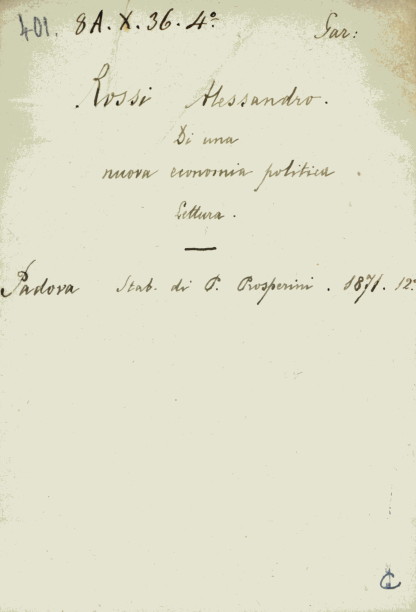 401. 8A. X. 36. 4º.
Gar:
Rossi Alessandro.
Di una
nuova economia politica.
Lettura.
Padova Stab. di P. Prosperini. 1871. 12º